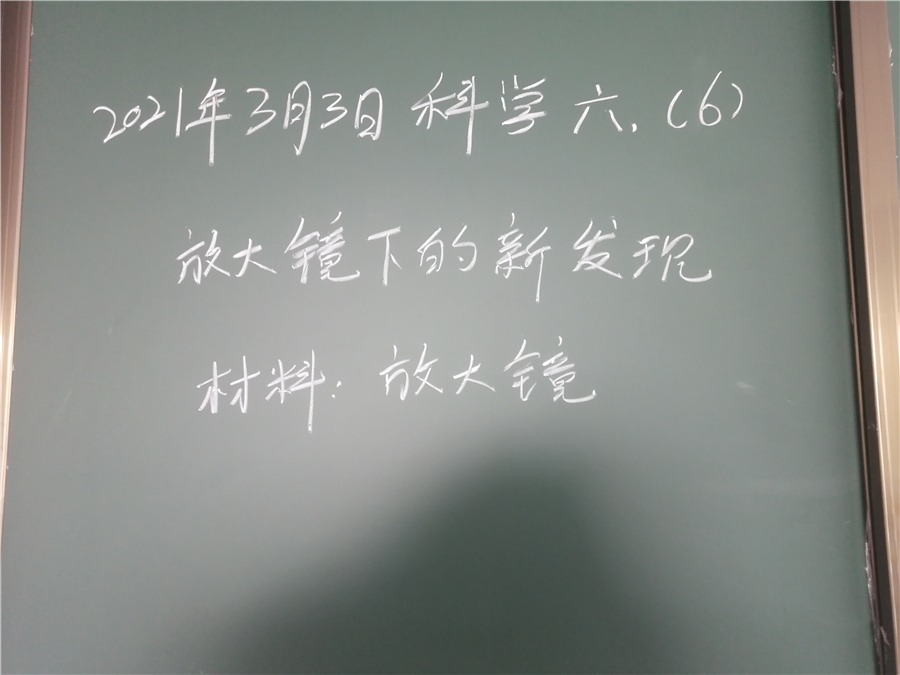 2021年3月3日 科学 六.(6)
放大镜下的新发现
材料:放大镜